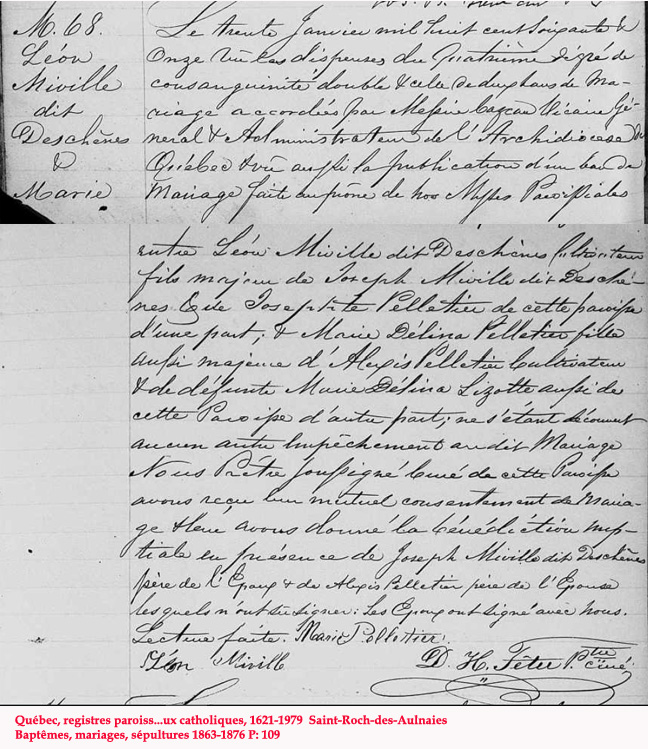 M. 68.
Léon
Miville
dit
Deschênes
&
Marie
Le trente Janvier mil huit cent soixante &
onze vu les dispenses du quatrième dégré de
consanguinité double & celle de deux bans de Ma-
riage accordées par Messire Cazeau Vicaire Gé-
neral & Administrateur de l'Archidiocèse de
Québec & vu aussi la publication d'un ban de
Mariage faite au prône de nos Messes Paroissiales
entre Léon Miville dit Deschênes Cultivateur
fils majeur de Joseph Miville dit Deschê-
nes & de Josephte Pelletier de cette paroisse
d'une part; & Marie Délina Pelletier fille
aussi majeure d'Alexis Pelletier Cultivateur
& de défunte Marie Délina Lizotte aussi de
cette Paroisse d'autre part; ne s'étant découvert
aucun autre Empêchement au dit Mariage
Nous Prêtre Soussigné Curé de cette Paroisse
avons reçu leur mutuel consentement de Maria-
ge & leur avons donné la bénédiction nup-
tiale en présence de Joseph Miville dit Deschênes
père de l'Epoux & de Alexis Pelletier père de l'Epouse
lesquels n'ont su signer: Les Epoux ont signé avec nous.
Lecture faite. Marie Pelletier
Léon Miville D. H. Têtu Ptre curé
Québec, registres paroiss...ux catholiques, 1621-1979 Saint-Roch-des-Aulnaies
Baptêmes, mariages, sépultures 1863-1876 P: 109